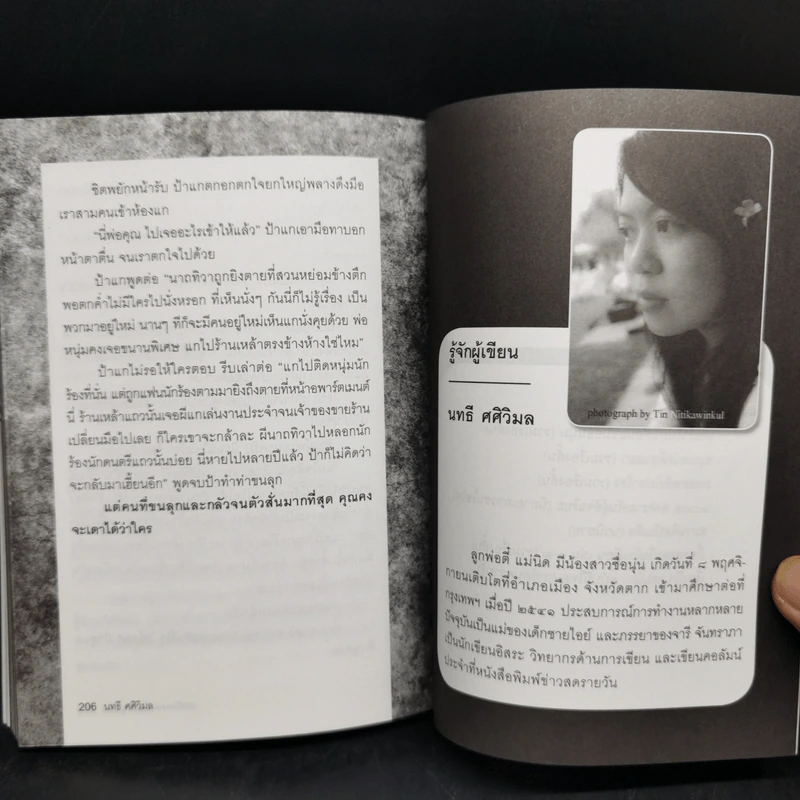 ชิตพยักหน้ารับ ป้าแกตกอกตกใจยกใหญ่พลางดึงมือ
เราสามคนเข้าห้องแก
"นี่พ่อคุณ ไปเจออะไรเข้าให้แล้ว" ป้าแกเอามือทาบอก
หน้าตาตื่น จนเราตกใจไปด้วย
ป้าแกพูดต่อ "นาถทิวาถูกยิงตายที่สวนหย่อมข้างตึก
พอตกค่ำไม่มีใครไปนั่งหรอก ที่เห็นนั่งๆ กันนี่ก็ไม่รู้เรื่อง เป็น
พวกมาอยู่ใหม่ นานๆ ทีก็จะมีคนอยู่ใหม่เห็นแกนั่งคุยด้วย พ่อ
หนุ่มคงเจอขนานพิเศษ แกไปร้านเหล้าตรงข้างห้างใช่ไหม"
ป้าแกไม่รอให้ใครตอบ รีบเล่าต่อ "แกไปติดหนุ่มนัก
ร้องที่นั่น แต่ถูกแฟนนักร้องตามมายิงถึงตายที่หน้าอพาร์ตเมนต์
นี่ ร้านเหล้าแถวนั้นเจอผีแกเล่นงานประจำจนเจ้าของขายร้าน
เปลี่ยนมือไปเลย ก็ใครเขาจะกล้าละ ผีนาถทิวาไปหลอกนัก
ร้องนักดนตรีแถวนั้นบ่อย นี่หายไปหลายปีแล้ว ป้าก็ไม่คิดว่า
จะกลับมาเฮี้ยนอีก" พูดจบป้าทำท่าขนลุก
แต่คนที่ขนลุกและกลัวจนตัวสั่นมากที่สุด คุณคง
จะเดาได้ว่าใคร
206 นทธี ศศิวิมล
photograph by Tin Nitikawinkul
รู้จักผู้เขียน
นทธี ศศิวิมล
ลูกพ่อตี๋ แม่นิด มีน้องสาวชื่อนุ่น เกิดวันที่ ๘ พฤศจิ-
กายนเติบโตที่อำเภอเมือง จังหวัดตาก เข้ามาศึกษาต่อที่
กรุงเทพฯ เมื่อปี ๒๕๔๑ ประสบการณ์การทำงานหลากหลาย
ปัจจุบันเป็นแม่ของเด็กชายไอย์ และภรรยาของจารี จันทราภา
เป็นนักเขียนอิสระ วิทยากรด้านการเขียน และเขียนคอลัมน์
ประจำที่หนังสือพิมพ์ข่าวสดรายวัน